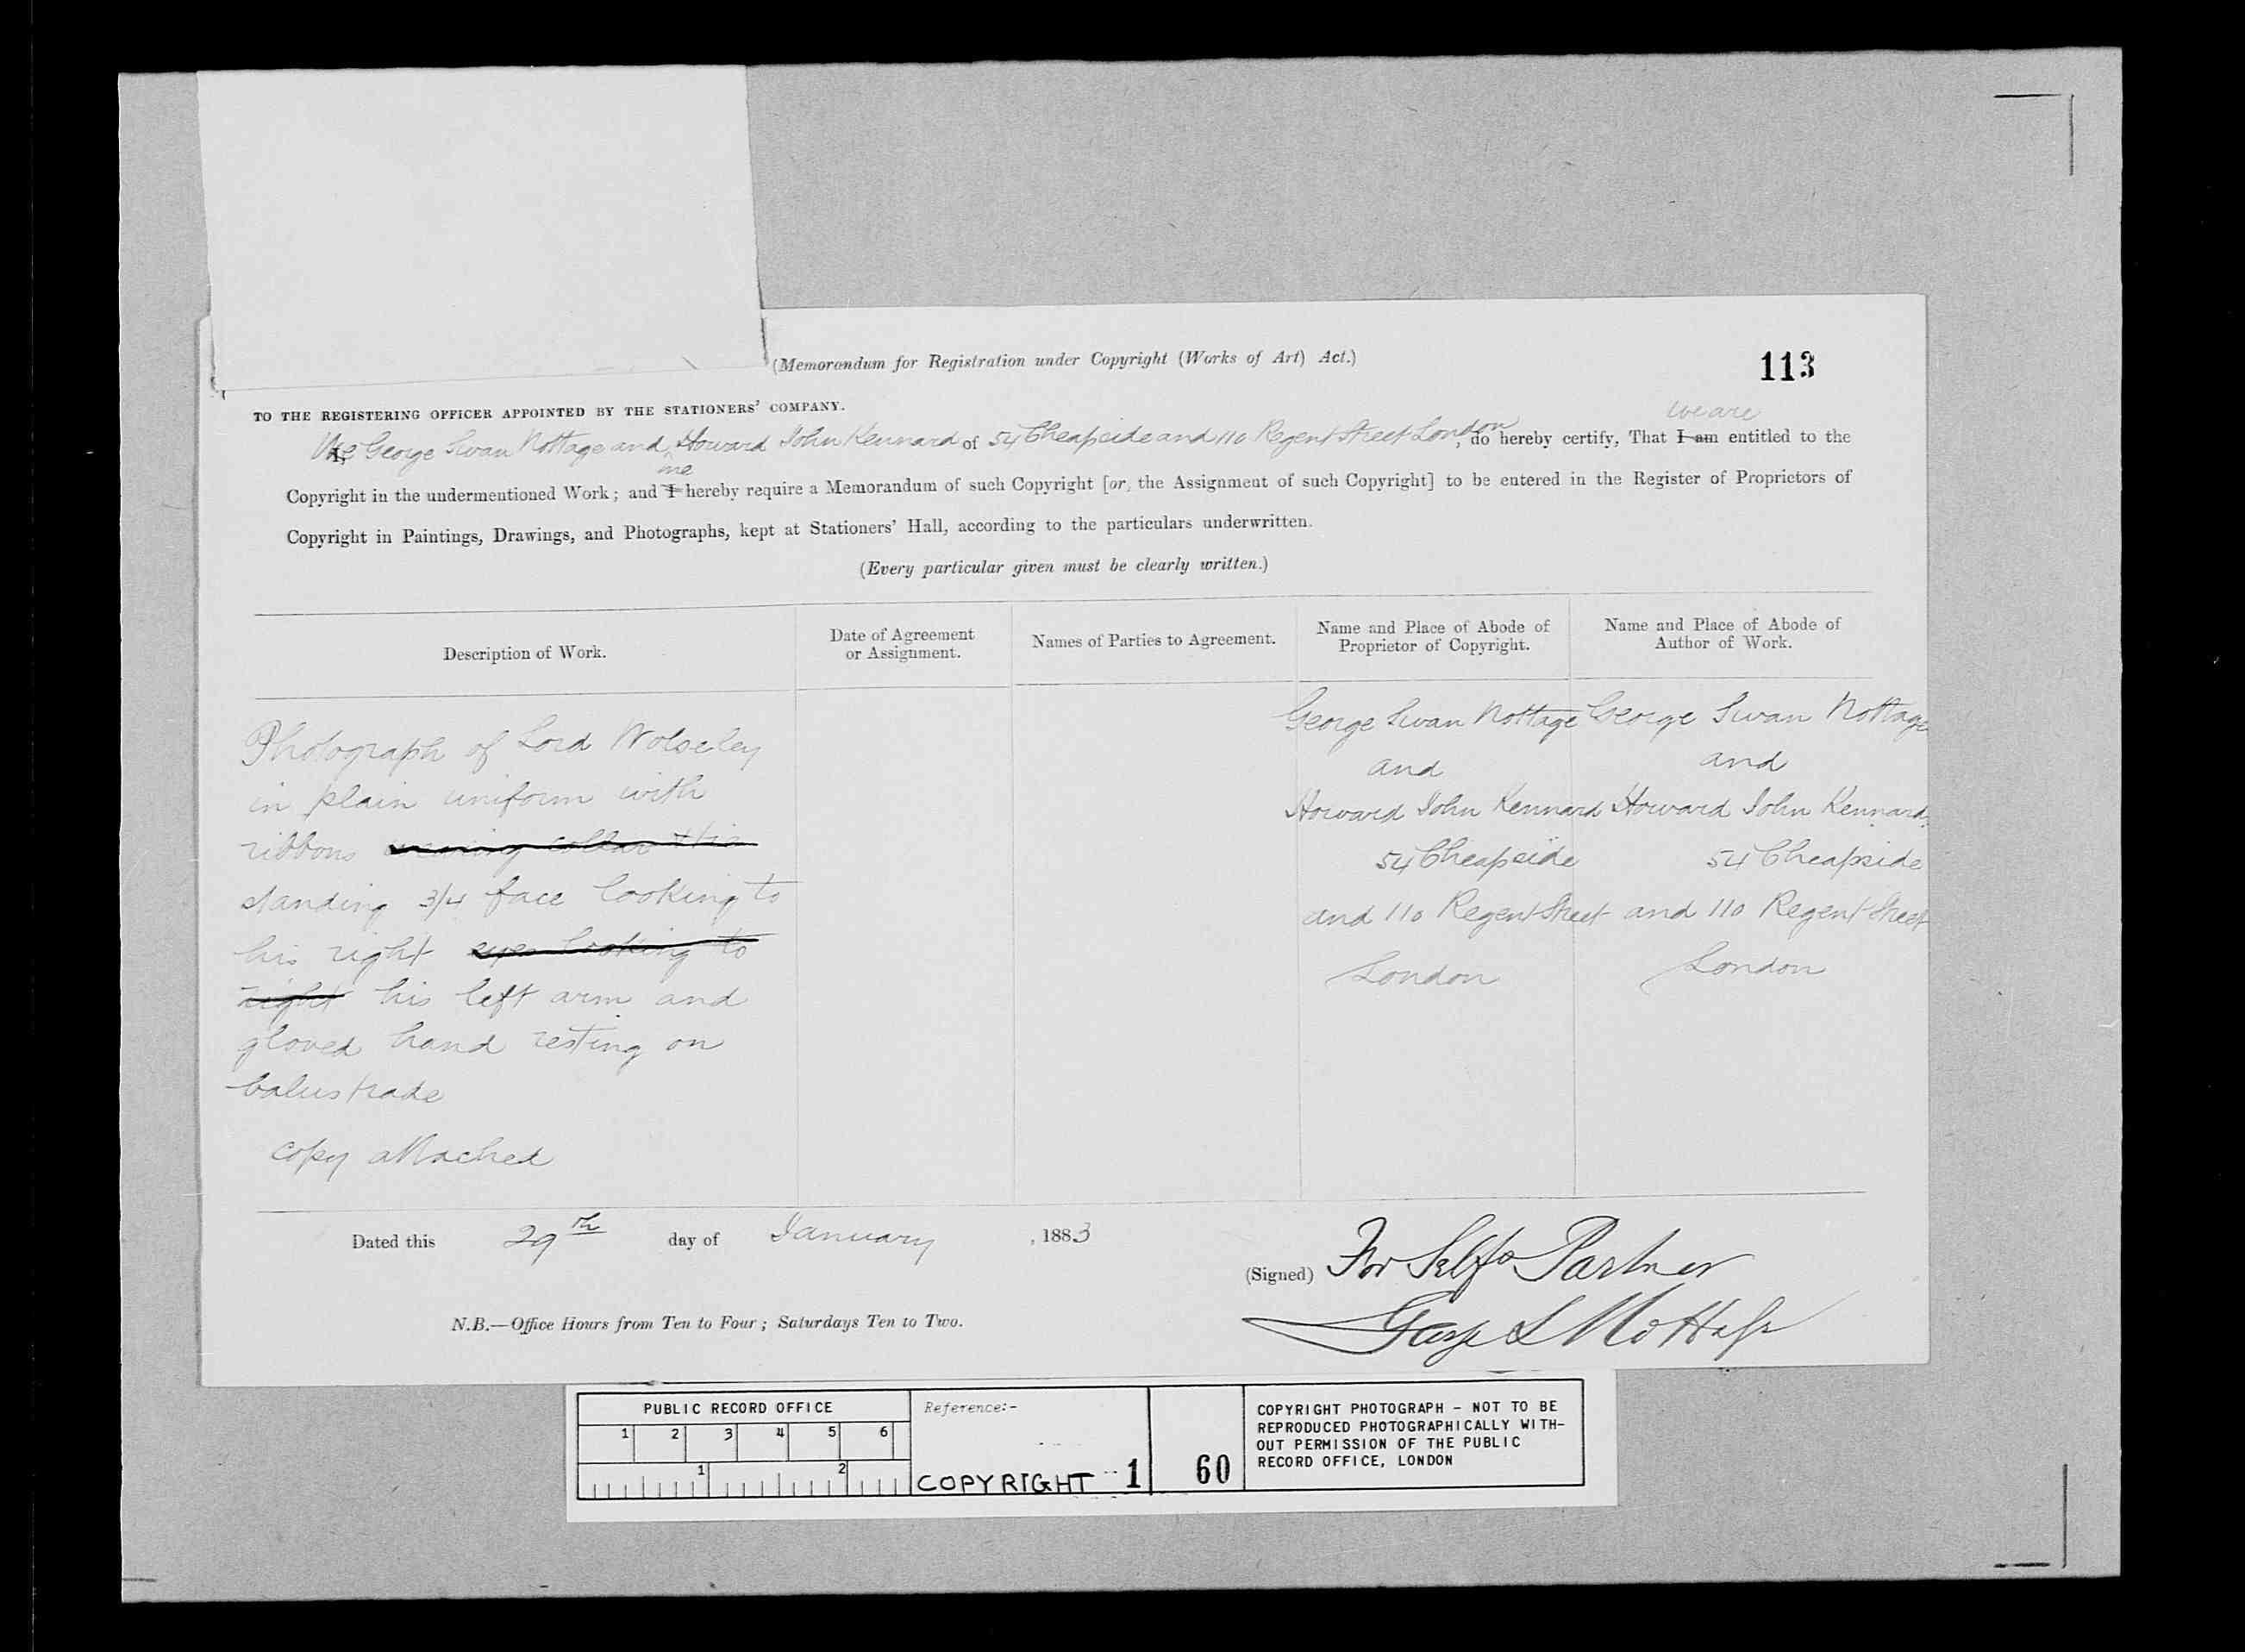 (Memorandum for Registration under Copyright (Works of Art) Act.)
113
TO THE REGISTERING OFFICER APPOINTED BY THE STATIONERS' COMPANY.
we are
I, We George Swan Nottage and Howard John Kennard of 54 Cheapside and 110 Regent Street London, do hereby certify, That I am entitled to the
we
Copyright in the undermentioned Work; and I hereby require a Memorandum of such Copyright [or, the Assignment of such Copyright] to be entered in the Register of Proprietors of
Copyright in Paintings, Drawings, and Photographs, kept at Stationers' Hall, according to the particulars underwritten.
(Every particular given must be clearly written.)
Description of Work.
Date of Agreement
or Assignment.
Names of Parties to Agreement.
Name and Place of Abode of
Proprietor of Copyright.
Name and Place of Abode of
Author of Work.
Photograph of Lord Wolseley
in plain uniform with
ribbons wearing collar
standing 3/4 face looking to
his right eyes looking to
right his left arm and
gloved hand resting on
balustrade
copy attached
George Swan Nottage
and
Howard John Kennard
54 Cheapside
and 110 Regent Street
London
George Swan Nottage
and
Howard John Kennard
54 Cheapside
and 110 Regent Street
London
Dated this 29th day of January, 1883
(Signed) For Self & Partner
George S Nottage
N.B.—Office Hours from Ten to Four; Saturdays Ten to Two.
PUBLIC RECORD OFFICE
1 2 3 4 5 6
1 2
Reference:-
COPYRIGHT 1
60
COPYRIGHT PHOTOGRAPH - NOT TO BE
REPRODUCED PHOTOGRAPHICALLY WITH-
OUT PERMISSION OF THE PUBLIC
RECORD OFFICE, LONDON